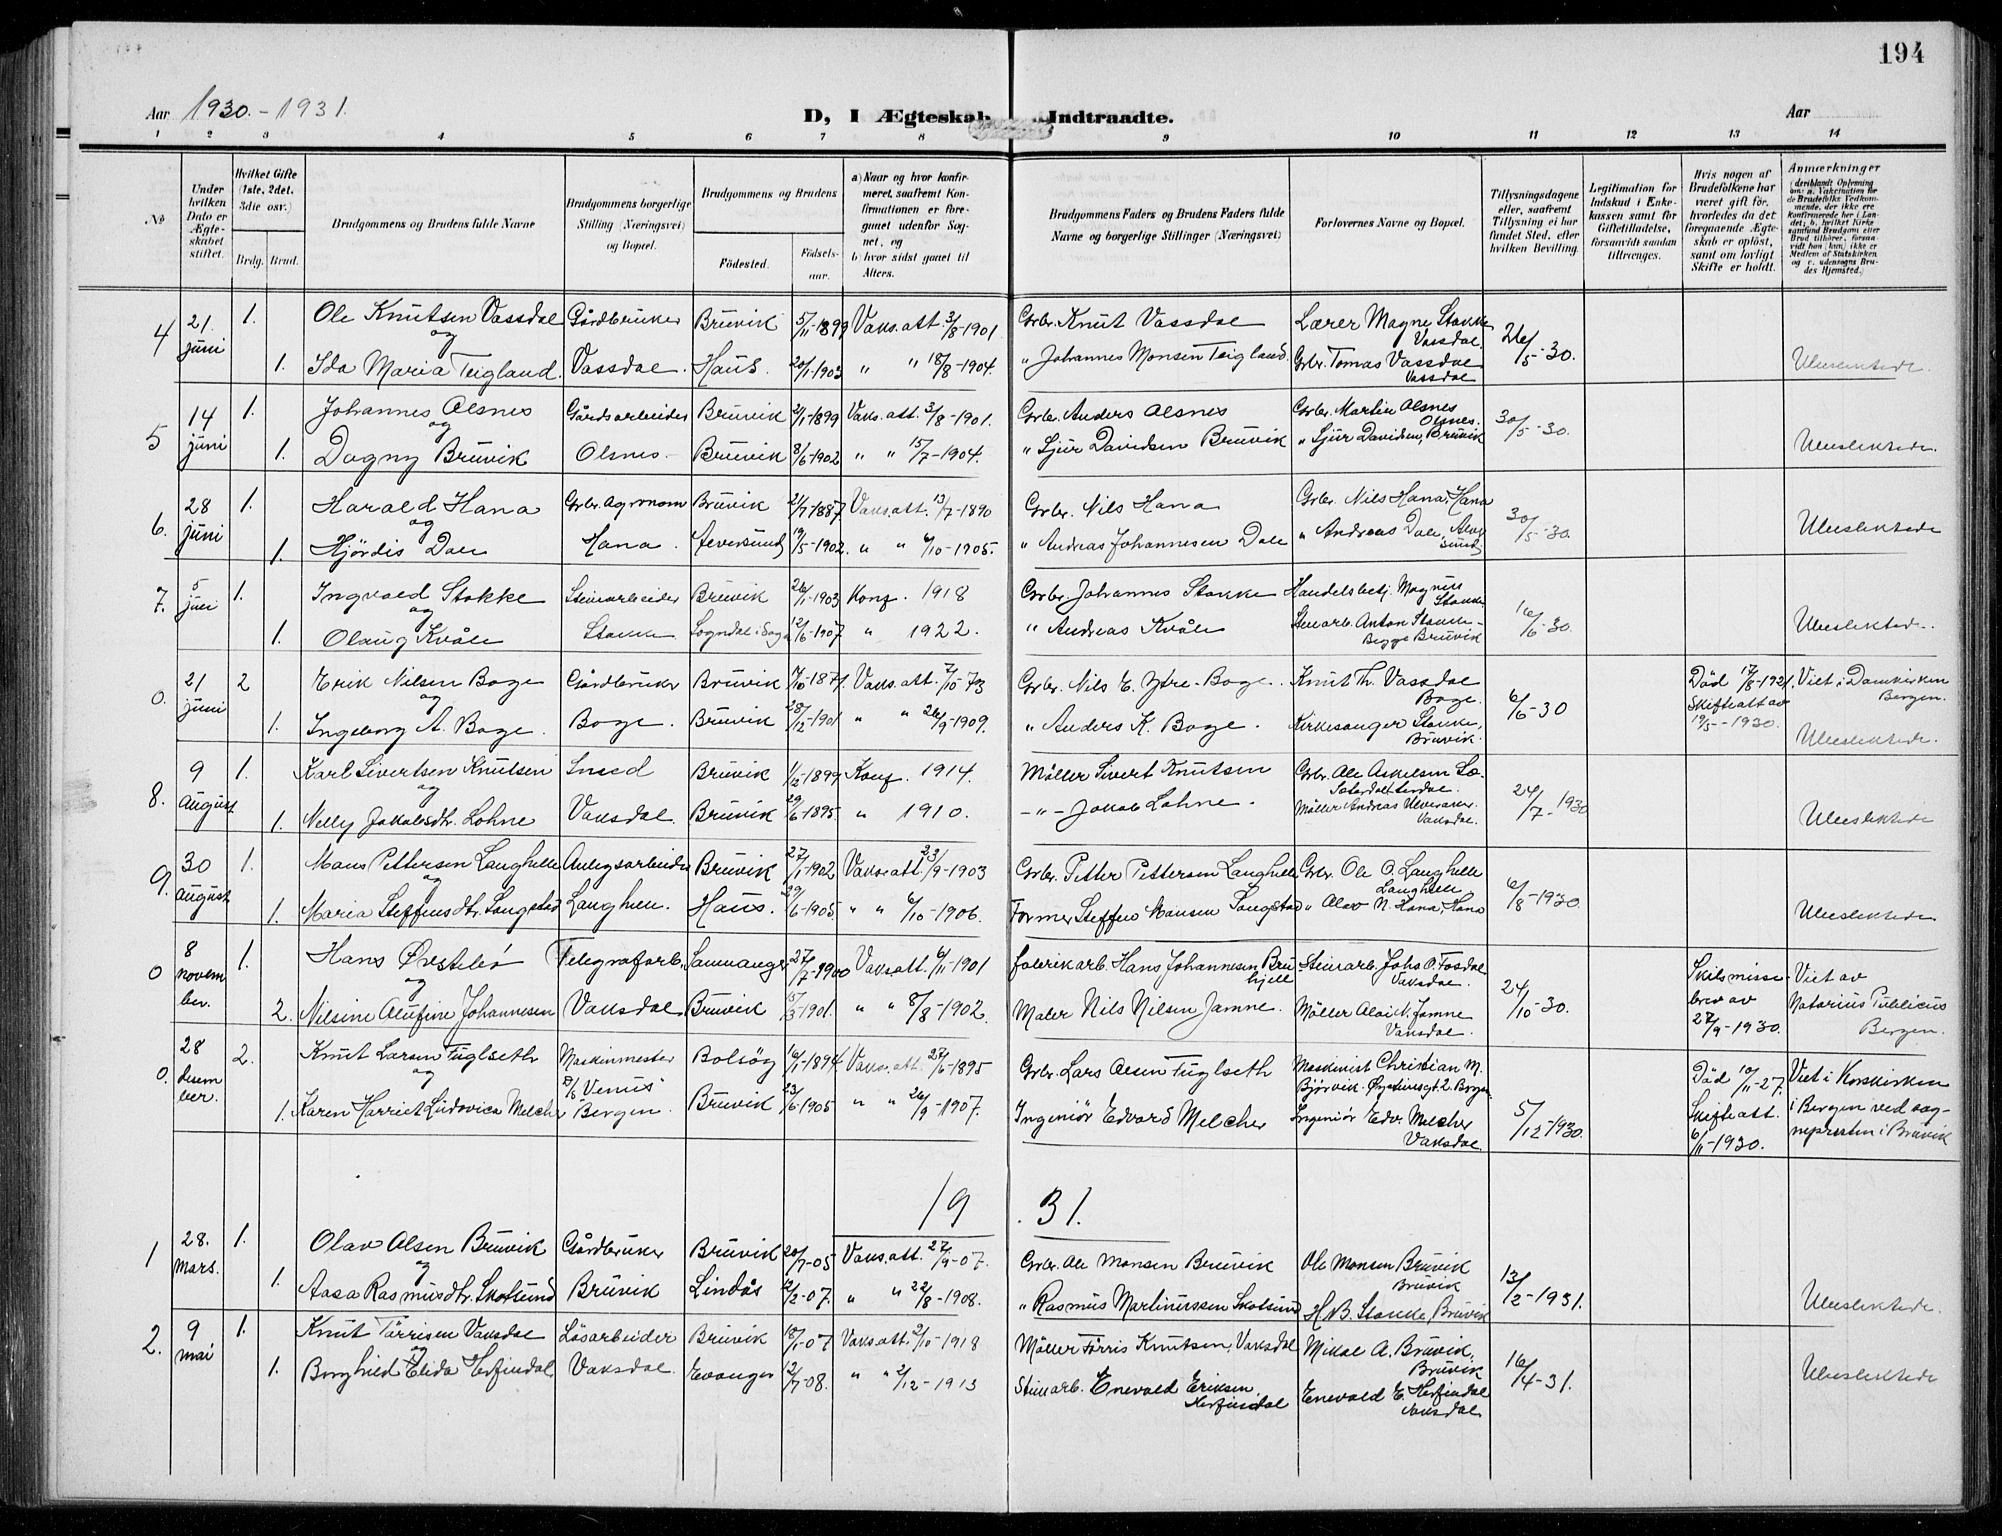 194
Aar 1930.-1931.
D, I Ægteskab Indtraadte.
Aar
1 2 3 4 5 6 7 8 9 10 11 12 13 14
No
Under hvilken Dato er Ægteskabet stiftet.
Hvilket Gifte (1ste, 2det, 3die osv.)
Brdg. Brud.
Brudgommens og Brudens fulde Navne
Brudgommens borgerlige Stilling (Næringsvei) og Bopæl.
Brudgommens og Brudens
Födested.
Födselsaar.
a) Naar og hvor konfirmeret, saafremt Konfirmationen er foregaaet udenfor Sognet, og
b) hvor sidst gaaet til Alters.
Brudgommens Faders og Brudens Faders fulde Navne og borgerlige Stillinger (Næringsvei)
Forlovernes Navne og Bopæl.
Tillysningsdagene eller, saafremt Tillysning ei har fundet Sted, efter hvilken Bevilling.
Legitimation for Indskud i Enkekassen samt for Giftetilladelse, forsaavidt saadan tiltrænges.
Hvis nogen af Brudefolkene har været gift för, hvorledes da det foregaaende Ægteskab er oplöst, samt om lovligt Skifte er holdt.
Anmærkninger
(deriblandt Oplysning om: a. Vakcination for de Brudefolks Vedkommende, der ikke ere konfirmerede her i Landet; b. hvilket Kirkesamfund Brudgom eller Brud tilhörer, forsaavidt han (hun) ikke er Medlem af Statskirken og c. udensogns Brudes Hjemsted.)
4 21. juni 1. Ole Knutsen Vassdal Gårdbruker Bruvik 5/11-1899 Vaks.att. 3/8-1901 Grbr. Knut Vassdal Lærer Magne Stokke Vassdal. 26/5-30.
og
1. Ida Maria Teigland. Vassdal. Haus. 20/1-1903 " " 18/8-1904. " Johannes Monsen Teigland. Grbr. Tomas Vassdal Vassdal Ubeslektede.
5 14 juni 1. Johannes Olsnes Gårdsarbeider Bruvik 2/1-1899 Vaks.att. 3/8-1901. Grbr. Anders Olsnes Grbr. Martin Olsnes Olsnes. 30/5-30.
og
1. Dagny Bruvik Olsnes. Bruvik 8/6-1902 " " 15/7-1904. " Sjur Davidsen Bruvik " Sjur Davidsen, Bruvik Ubeslektede.
6. 28 juni 1. Harald Hana Grbr. Agronom Bruvik 21/7-1887 Vaks.att. 13/7-1890 Grbr. Nils Hana Grbr. Nils Hana, Hana 30/5-30.
og
1. Hjördis Dale Hana. 19/5-1902. " " 6/10-1905. " Andreas Johannesen Dale " Andreas Dale, Ubeslektede
7. 5 juli 1. Ingvald Stokke Steinarbeider Bruvik 26/1-1903 Konf. 1918 Grbr. Johannes Stokke Handelsbetj. Magnus Stokke 16/6-30.
og
1. Olaug Kvåle Stokke Sogndal i Sogn 12/6-1907 " 1922. " Andreas Kvåle Steinarb. Anton Stokke - Begge Bruvik Ubeslektede.
0. 21 juni 2 Erik Nilsen Boge Gårdbruker Bruvik 7/10-1871. Vaks.att. 7/10-73 Grbr. Nils E. Ytre-Boge. Knut Th. Vassdal Boge. 6/6-30 Död 17/8-1921. Skifteatt av 19/5-1930. Viet i Domkirken Bergen.
og
1. Ingeborg A. Boge. Boge. Bruvik 28/12-1901 " " 26/9-1909. " Anders K. Boge. Kirkesanger Stokke, Bruvik. Ubeslektede.
8. 9 August 1. Karl Sivertsen Knutsen Bruvik 1/2-1899 Konf. 1914. Möller Sivert Knutsen Grbr. Ole Askelsen 24/7-1930
og
1. Nelly Jakobsdtr. Lohne Vaksdal. Bruvik 29/6-1895. " 1910. -"- Jakob Lohne. Möller Andreas Vaksdal. Ubeslektede
9. 30 August 1. Mons Pettersen Langhelle Anlegsarbeider Bruvik 27/1-1902 Vaks.att. 23/9-1903 Grbr. Petter Pettersen Langhelle Grbr. Ole O. Langhelle Langhelle 6/8-1930.
og
1. Maria Steffensdtr. Songstad Langhelle. Haus. 29/6-1905. " " 6/10-1906. Former Steffen Monsen Songstad " Olav N. Hana, Hana Ubeslektede
0 8 november. 1. Hans Örstebø Telegrafarb. Samnanger 27/7-1900 Vaks.att. 6/11-1901 Fabrikarb. Hans Johannesen Steinarb. Johs O. Fosdal Vaksdal. 24/10-30. Skilsmissebrev av 27/9-1930. Viet av Notarius Publicus Bergen.
og
2. Nilsine Alufine Johannesen Vaksdal Bruvik 15/3-1901. " " 8/8-1902. Maler Nils Nilsen Jamne. Möller Olai N. Jamne Vaksdal.
0. 28 desember. 2. Knut Larsen Fuglseth Maskinmester D/S "Venus" Bolsöy 16/1-1894 Vaks.att. 27/6-1895 Grbr. Lars Olsen Fuglseth Maskinist Christian M. Björvik. Bergen 5/12-1930. Död 10/11-27. Skifteatt. 6/11-1930. Viet i Korskirken i Bergen ved sognepresten i Bruvik
og
1. Karen Harriet Ludovica Melcher Bergen. Bruvik 23/6-1905 " " 26/9-1907. Ingeniör Edvard Melcher Ingeniör Edv. Melcher Vaksdal
19 31.
1 28. Mars. 1. Olav Olsen Bruvik Gårdbruker Bruvik 20/7-05 Vaks.att. 27/9-07. Grbr. Ole Monsen Bruvik Ole Monsen Bruvik Bruvik 13/2-1931.
og
1. Aasa Rasmusdtr. Skotsund Bruvik Lindås 2/2-07. " " 22/8-1908. " Rasmus Martinussen Skotsund H.B. Stokke, Bruvik Ubeslektede.
2. 9 mai 1. Knut Törrisen Vaksdal Lösarbeider Bruvik 18/1-07 Vaks.att. 2/10-1918 Möller Törris Knutsen, Vaksdal Mikal A. Bruvik, Bruvik 16/4-31.
og
1. Borghild Elida Herfindal Vaksdal. Evanger 12/7-08. " " 2/12-1913 Steinarb. Enevald Eriksen Herfindal Enevald E. Herfindal Vaksdal Ubeslektede